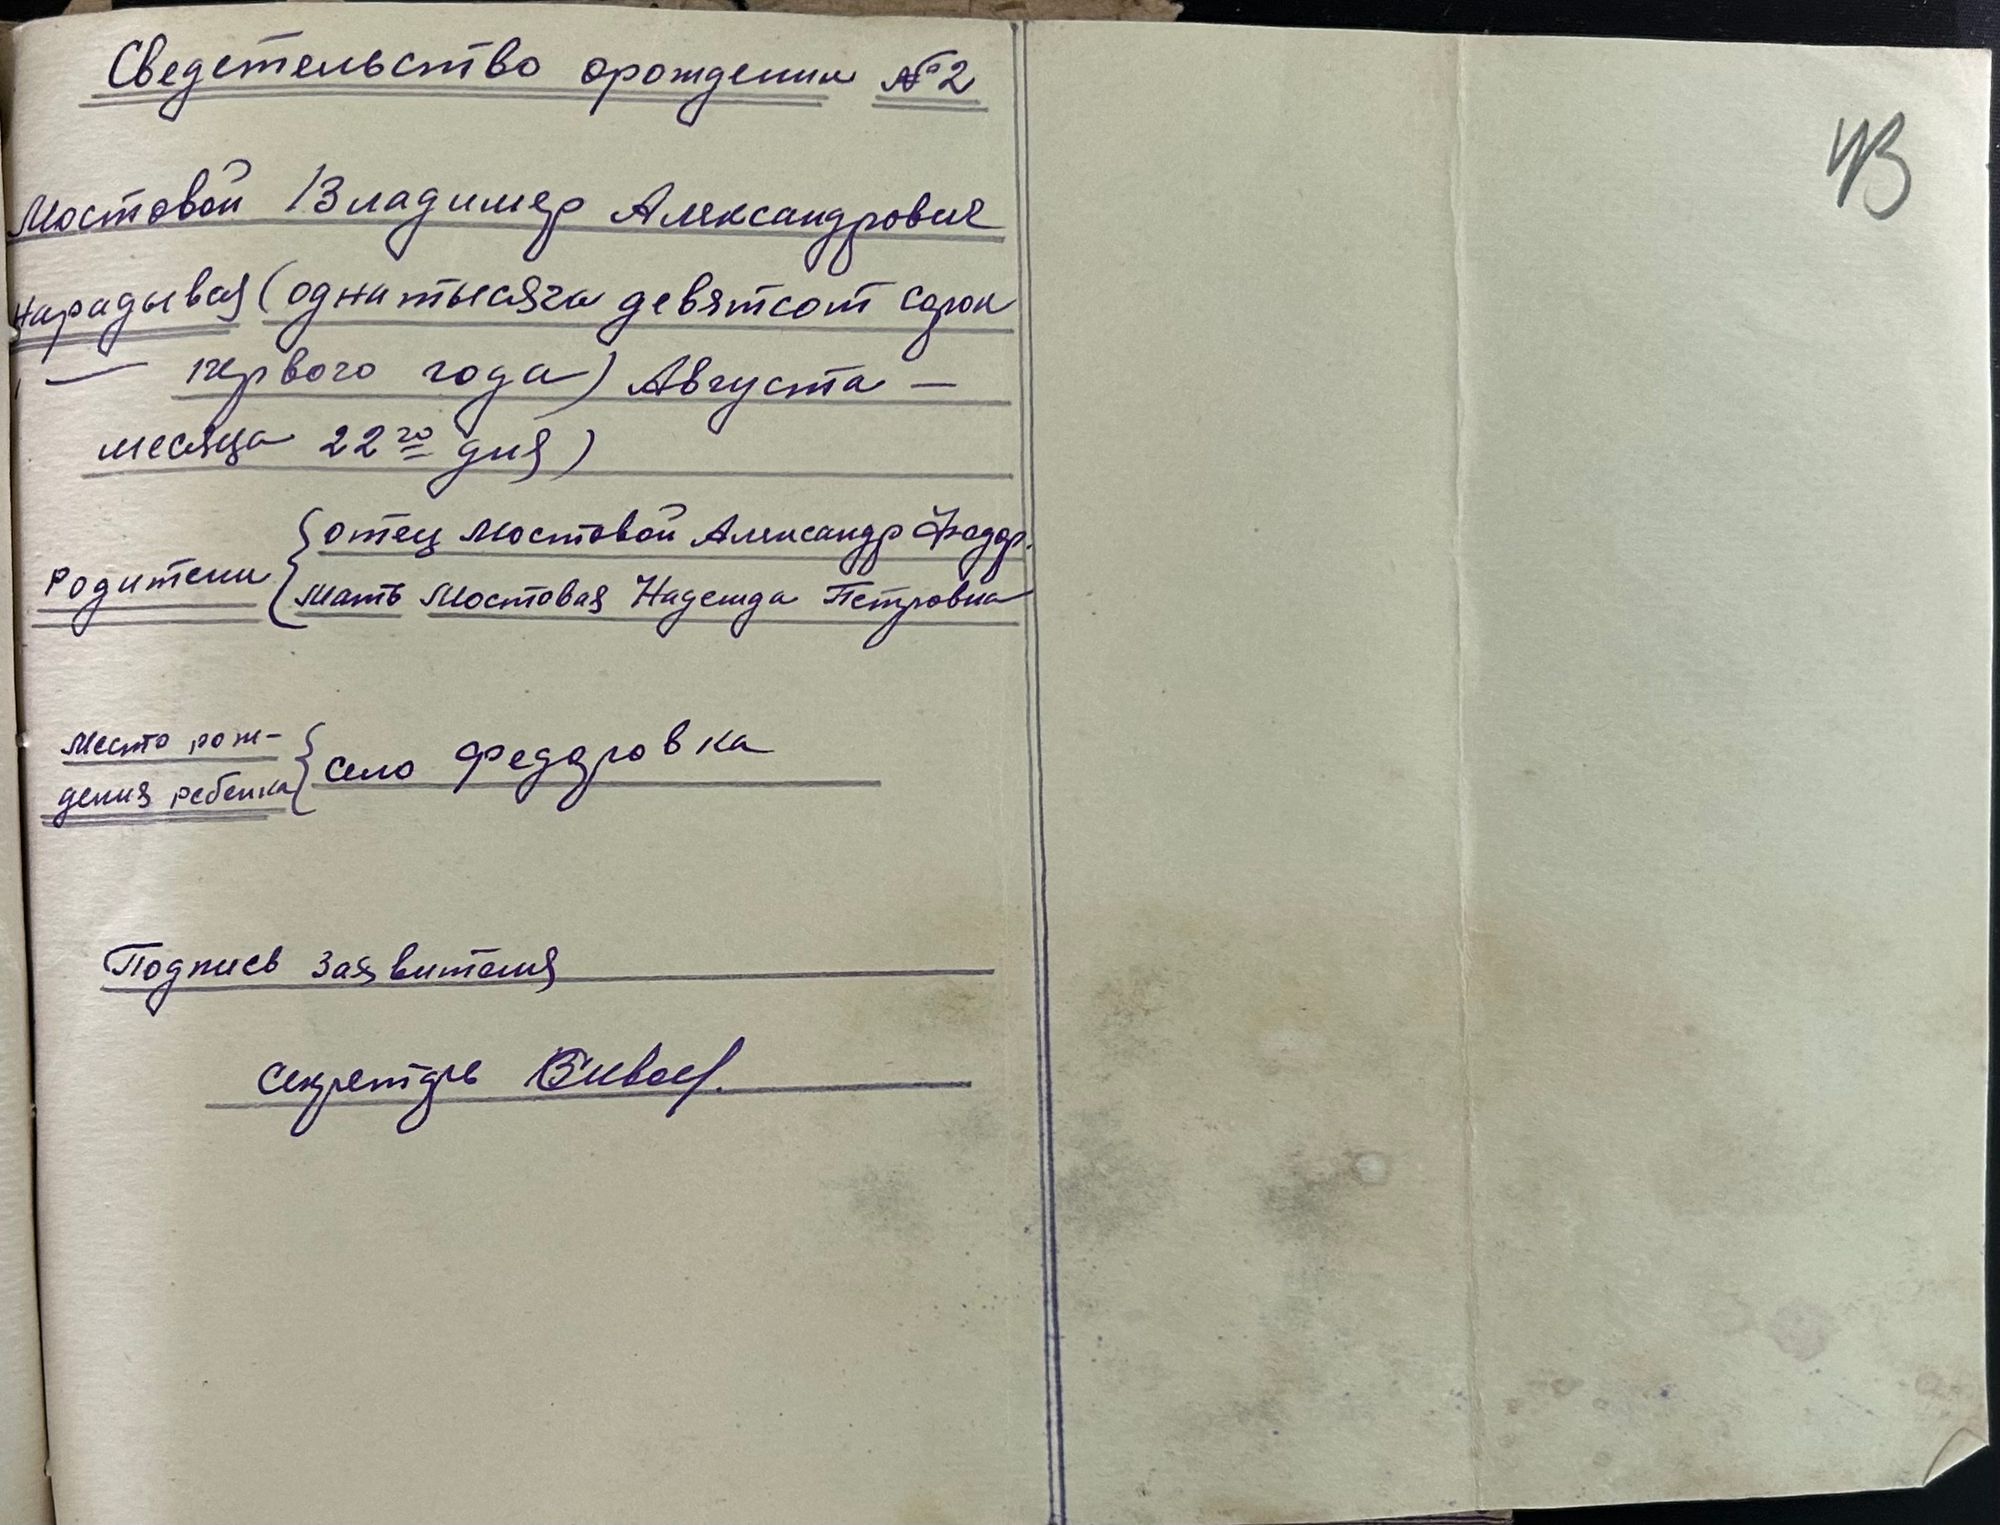 Сведетельство орождении №2
Мостовой Владимер Александрович
Нарадывся (одна тысяча девятсот сорок
— первого года) Августа —
месяца 22го дня)
Родители { отец Мостовой Александр Федор.
мать Мостовая Надежда Петровна
Место рож-
дения ребенка { село Федоровка
Подпись заявителя
секретарь